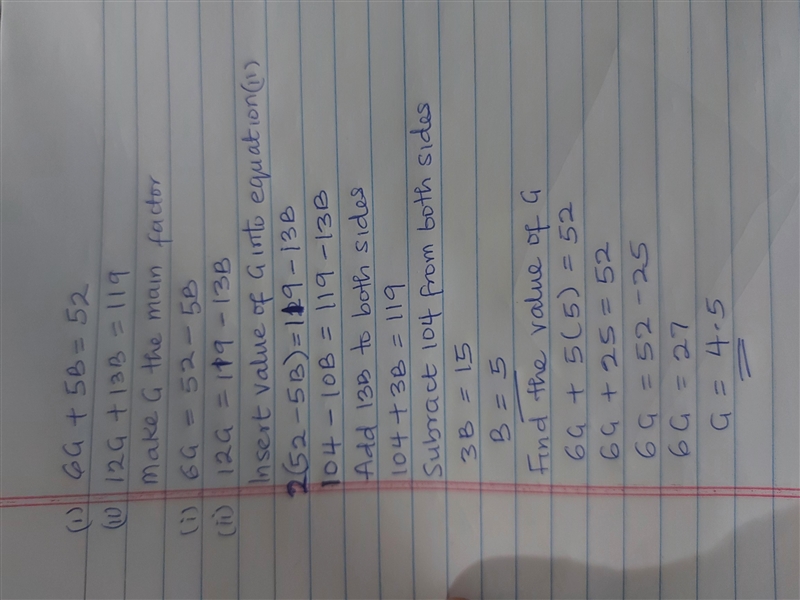 (i) 6G + 5B = 52
(ii) 12G + 13B = 119
Make G the main factor
(i) 6G = 52 - 5B
(ii) 12G = 119 - 13B
Insert value of G into equation(ii)
2(52 - 5B) = 119 - 13B
104 - 10B = 119 - 13B
Add 13B to both sides
104 + 3B = 119
Subract 104 from both sides
3B = 15
B = 5
Find the value of G
6G + 5(5) = 52
6G + 25 = 52
6G = 52 - 25
6G = 27
G = 4.5